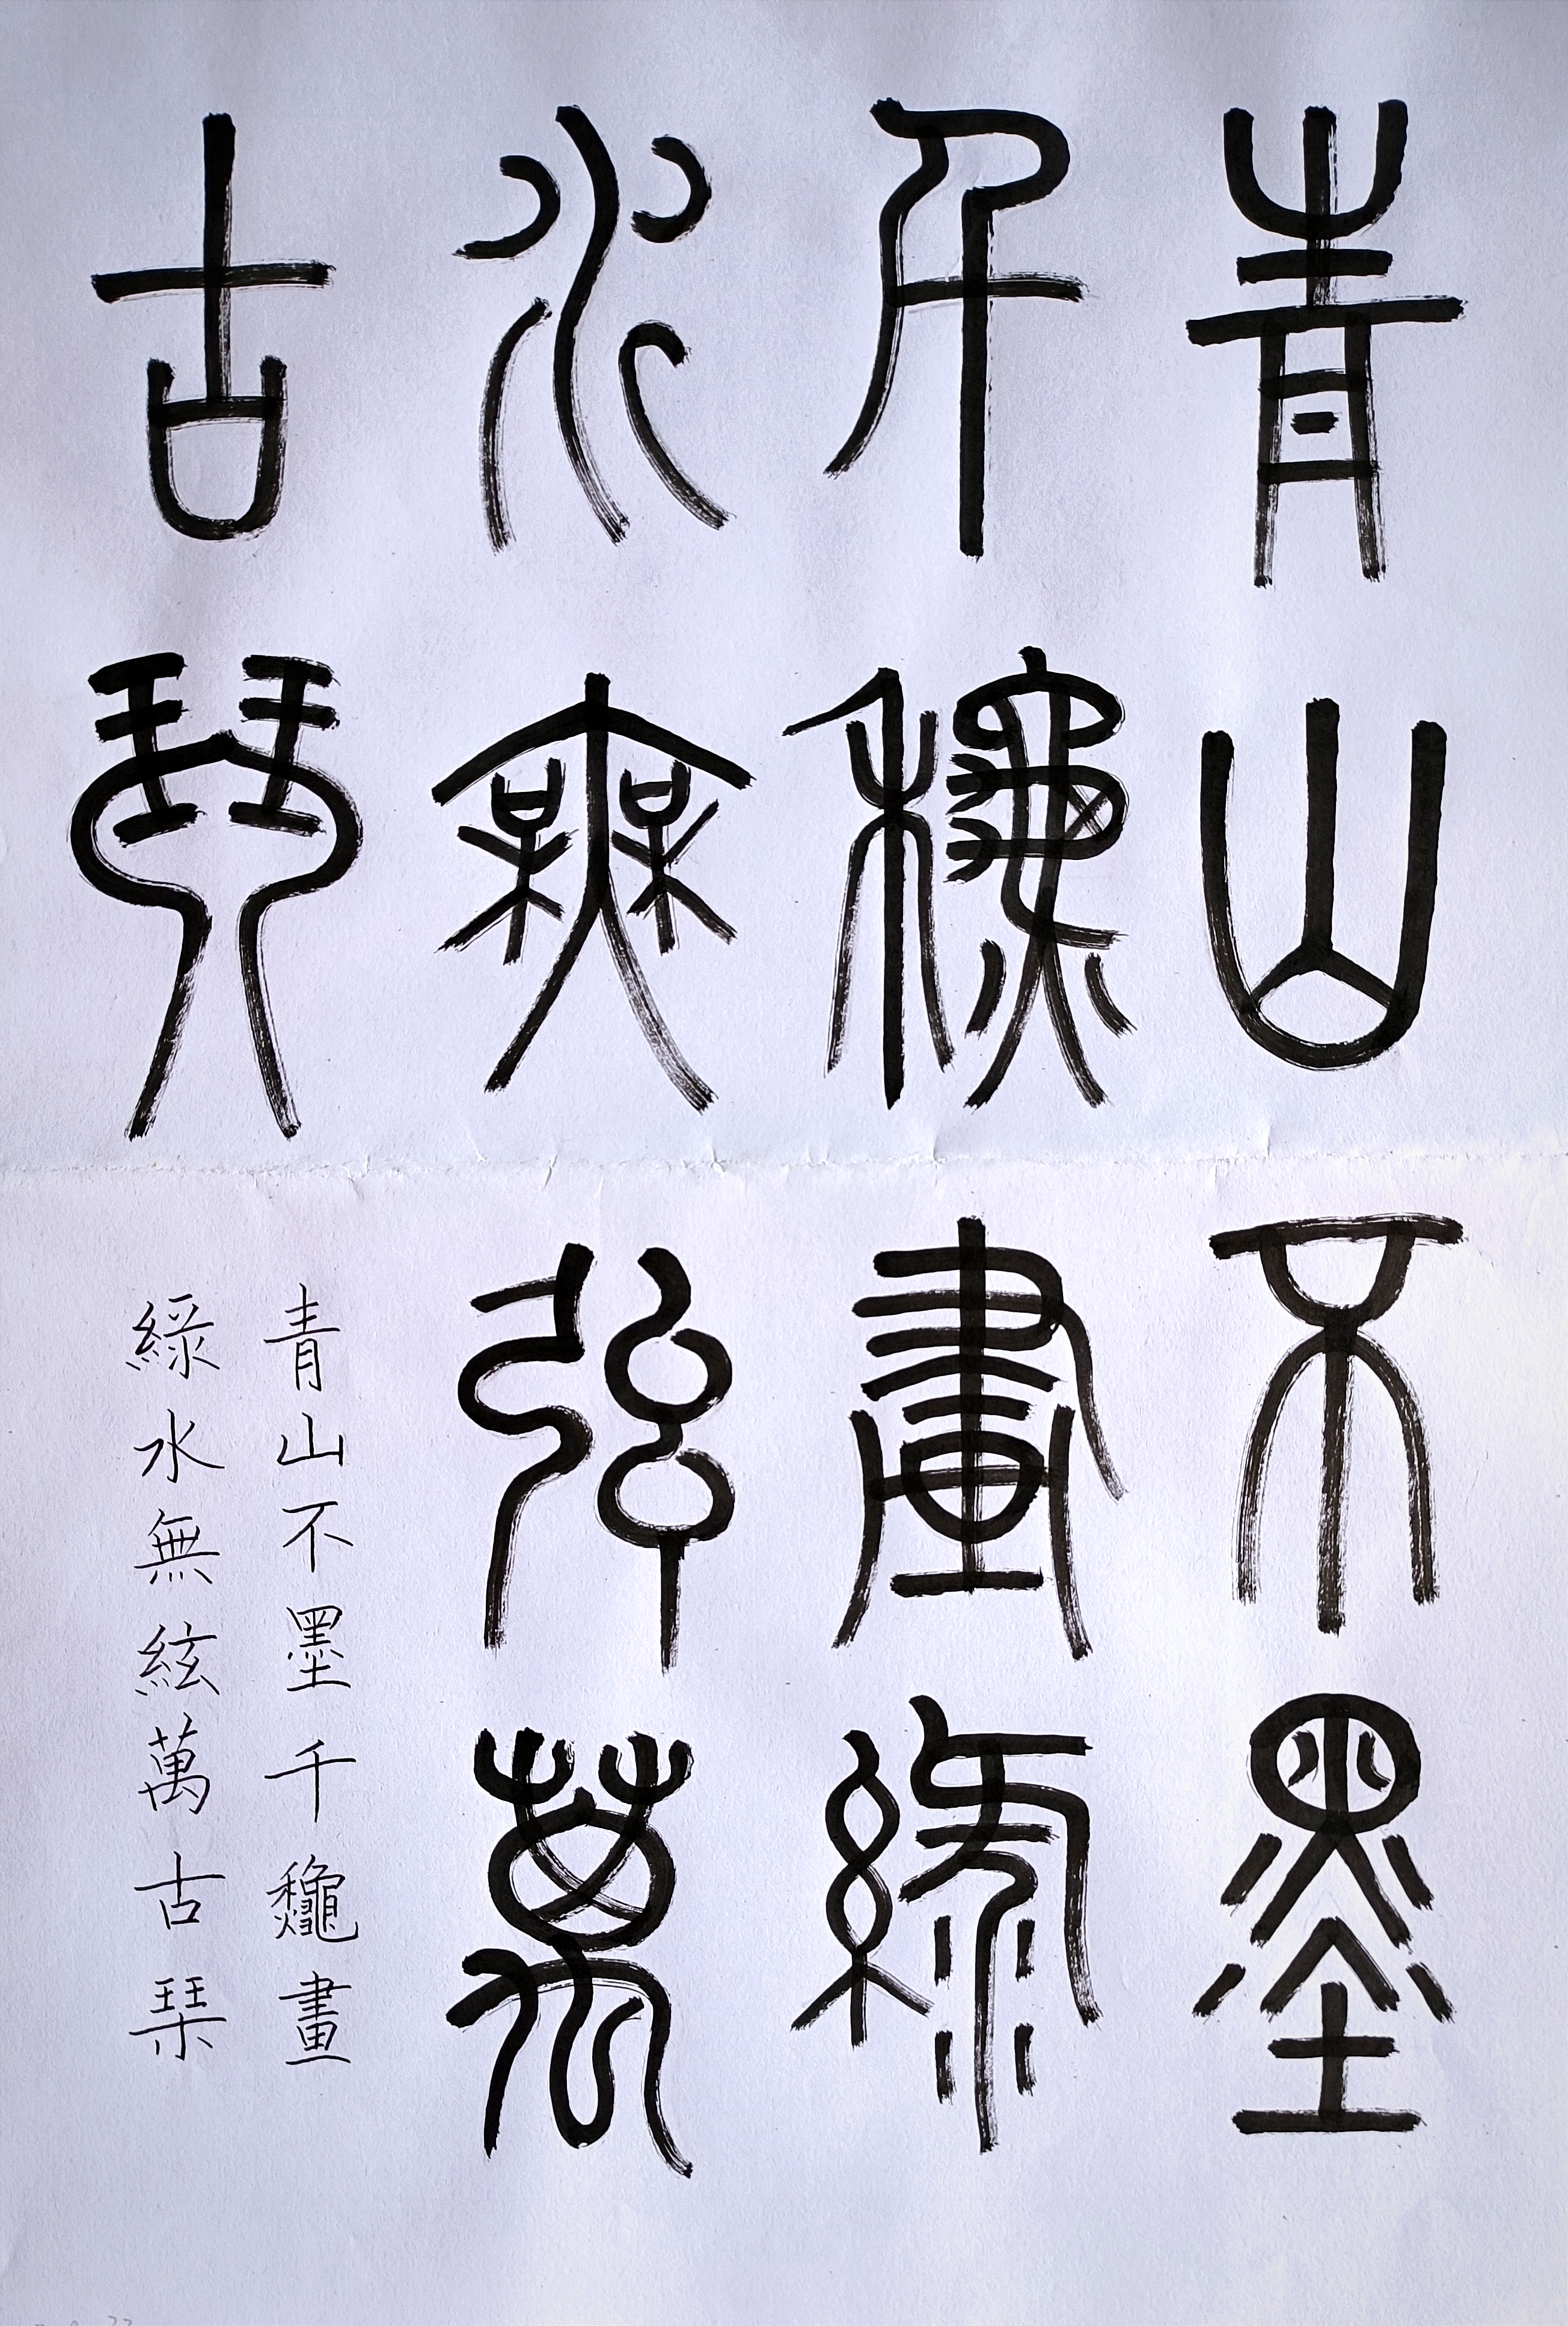 青山不墨
千龝畫綠
水無弦萬
古琴
青山不墨千龝畫
綠水無絃萬古琹